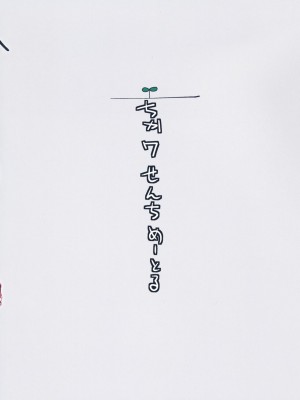 ちか 7 せんちめーとる